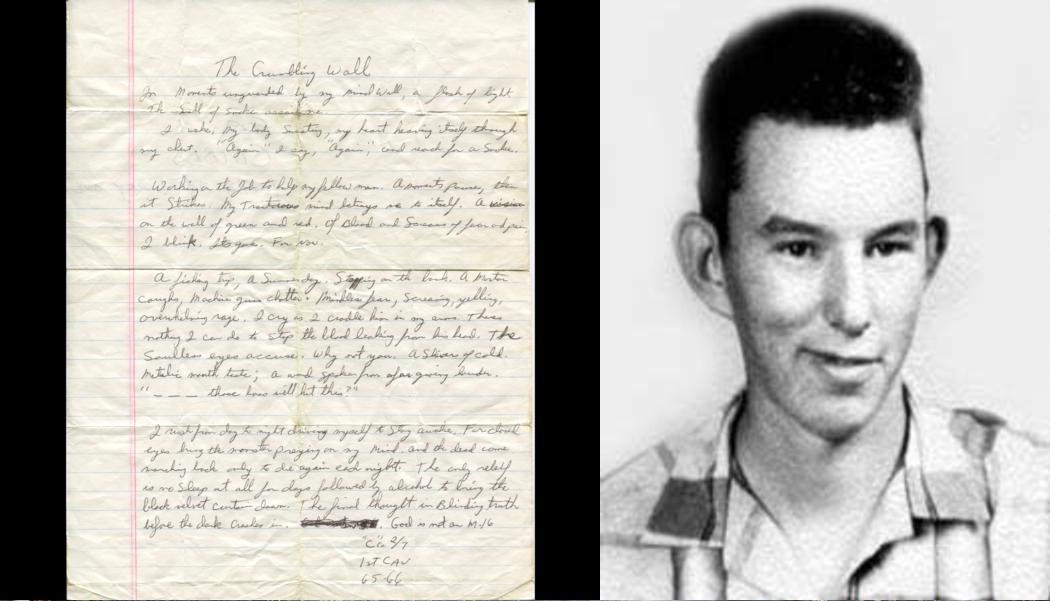 The Crumbling Wall
In Moments unguarded by my mind wall, a flash of light
The Smell of smoke
I wake, My body Sweating, my heart heaving itself through
my chest. "Again" I say, "Again", and reach for a Smoke.
Working on the Job, to help my fellow man. A moments pause, then
it Strikes. My Traitorous mind betrays me to itself. A vision
on the wall of green and red. Of Blood and Screams of fear and
I blink. Its gone. For now.
A fishing trip, a Summer day. Stepping on the bank. A Mortar
coughs, Machine guns chatter. Mindless fear, screaming, yelling,
overwhelming rage. I cry as I cradle him in my arms. Theres
nothing I can do to Stop the blood leaking from his head. The
Soulless eyes accuse. Why not you. A Shiver of cold.
Metalic mouth taste; a word spoken from afar
"_ _ _ those
I rush from day to night driving myself to Stay awake. For closed
eyes bring the monster preying on my Mind. and the dead come
marching back only to die again each night. The only relief
is no Sleep at all for days followed by alcohol to bring the
black velvet curtain down. The final thought in Blinding truth
before the dark crashes in. God is not an M-16
"C" Co 2/7
1st CAV
65-66